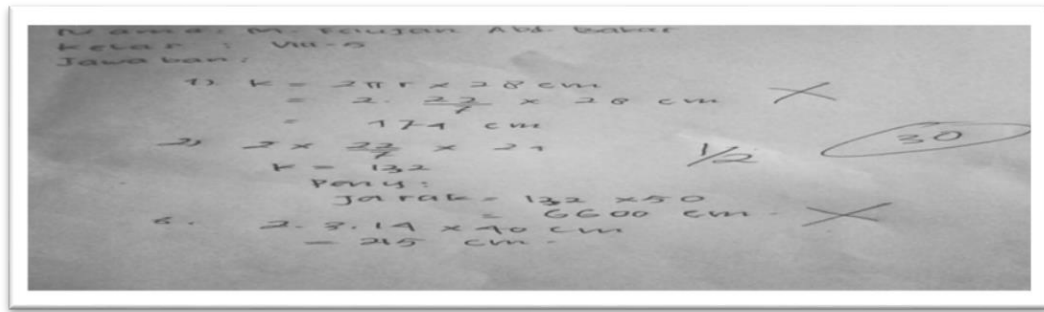 Nama : M. Fauzan Abd. Bakar
Kelas : VIII-5
Jawaban :
1) K = 2πr × 28 cm
= 2 . 22/7 × 28 cm ×
= 174 cm
2) 2 × 22/7 × 21 1/2 30
K = 132
Peny :
Jarak = 132 × 50
= 6600 cm - ×
2.3.14 × 40 cm
= 215 cm -